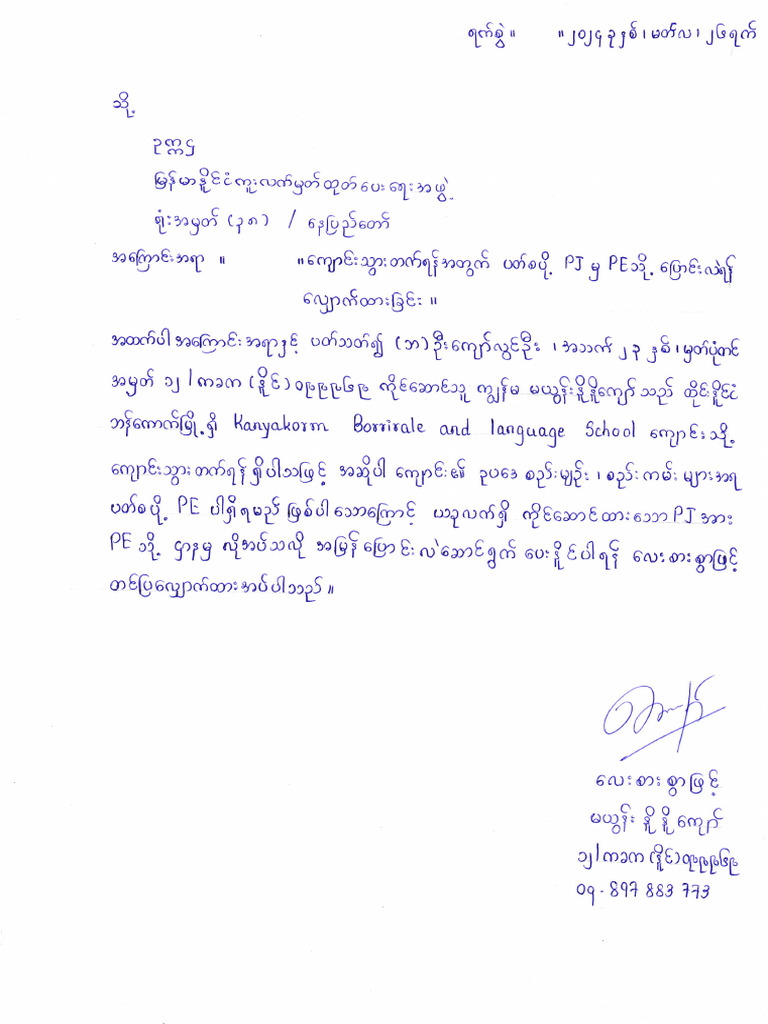 ရက်စွဲ ။ ။ ၂၀၂၄ ခုနှစ် ၊ မတ်လ ၊ ၂၆ ရက်
သို့
ဥက္ကဌ
မြန်မာနိုင်ငံကူးလက်မှတ်ထုတ်ပေးရေးအဖွဲ့
ရုံးအမှတ် (၃၈) / နေပြည်တော်
အကြောင်းအရာ ။ ။ ကျောင်းသွားတက်ရန်အတွက် ပတ်စပို့ PJ မှ PE သို့ ပြောင်းလဲရန်
လျှောက်ထားခြင်း ။
အထက်ပါ အကြောင်းအရာနှင့် ပတ်သတ်၍ (ဘ) ဦးကျော်လွင်ဦး ၊ အသက် ၂၃ နှစ် ၊ မှတ်ပုံတင်
အမှတ် ၁၂/ကခက (နိုင်) ၀၉၉၉၆၉ ကိုင်ဆောင်သူ ကျွန်မ မယွန်းနို့နို့ကျော် သည် ထိုင်းနိုင်ငံ
ဘန်ကောက်မြို့ရှိ Kanyakorm Borrirale and language School ကျောင်းသို့
ကျောင်းသွားတက်ရန် ရှိပါသဖြင့် အဆိုပါ ကျောင်း၏ ဥပဒေ စည်းမျဉ်း ၊ စည်းကမ်း များအရ
ပတ်စပို့ PE ပါရှိရမည် ဖြစ်ပါသောကြောင့် ယခုလက်ရှိ ကိုင်ဆောင်ထားသော PJ အား
PE သို့ ဌာနမှ လိုအပ်သလို အမြန်ပြောင်းလဲဆောင်ရွက် ပေးနိုင်ပါရန် လေးစားစွာဖြင့်
တင်ပြလျှောက်ထားအပ်ပါသည် ။
လေးစားစွာဖြင့်
မယွန်းနို့နို့ကျော်
၁၂/ကခက (နိုင်) ၀၉၉၉၆၉
09-897 883 773